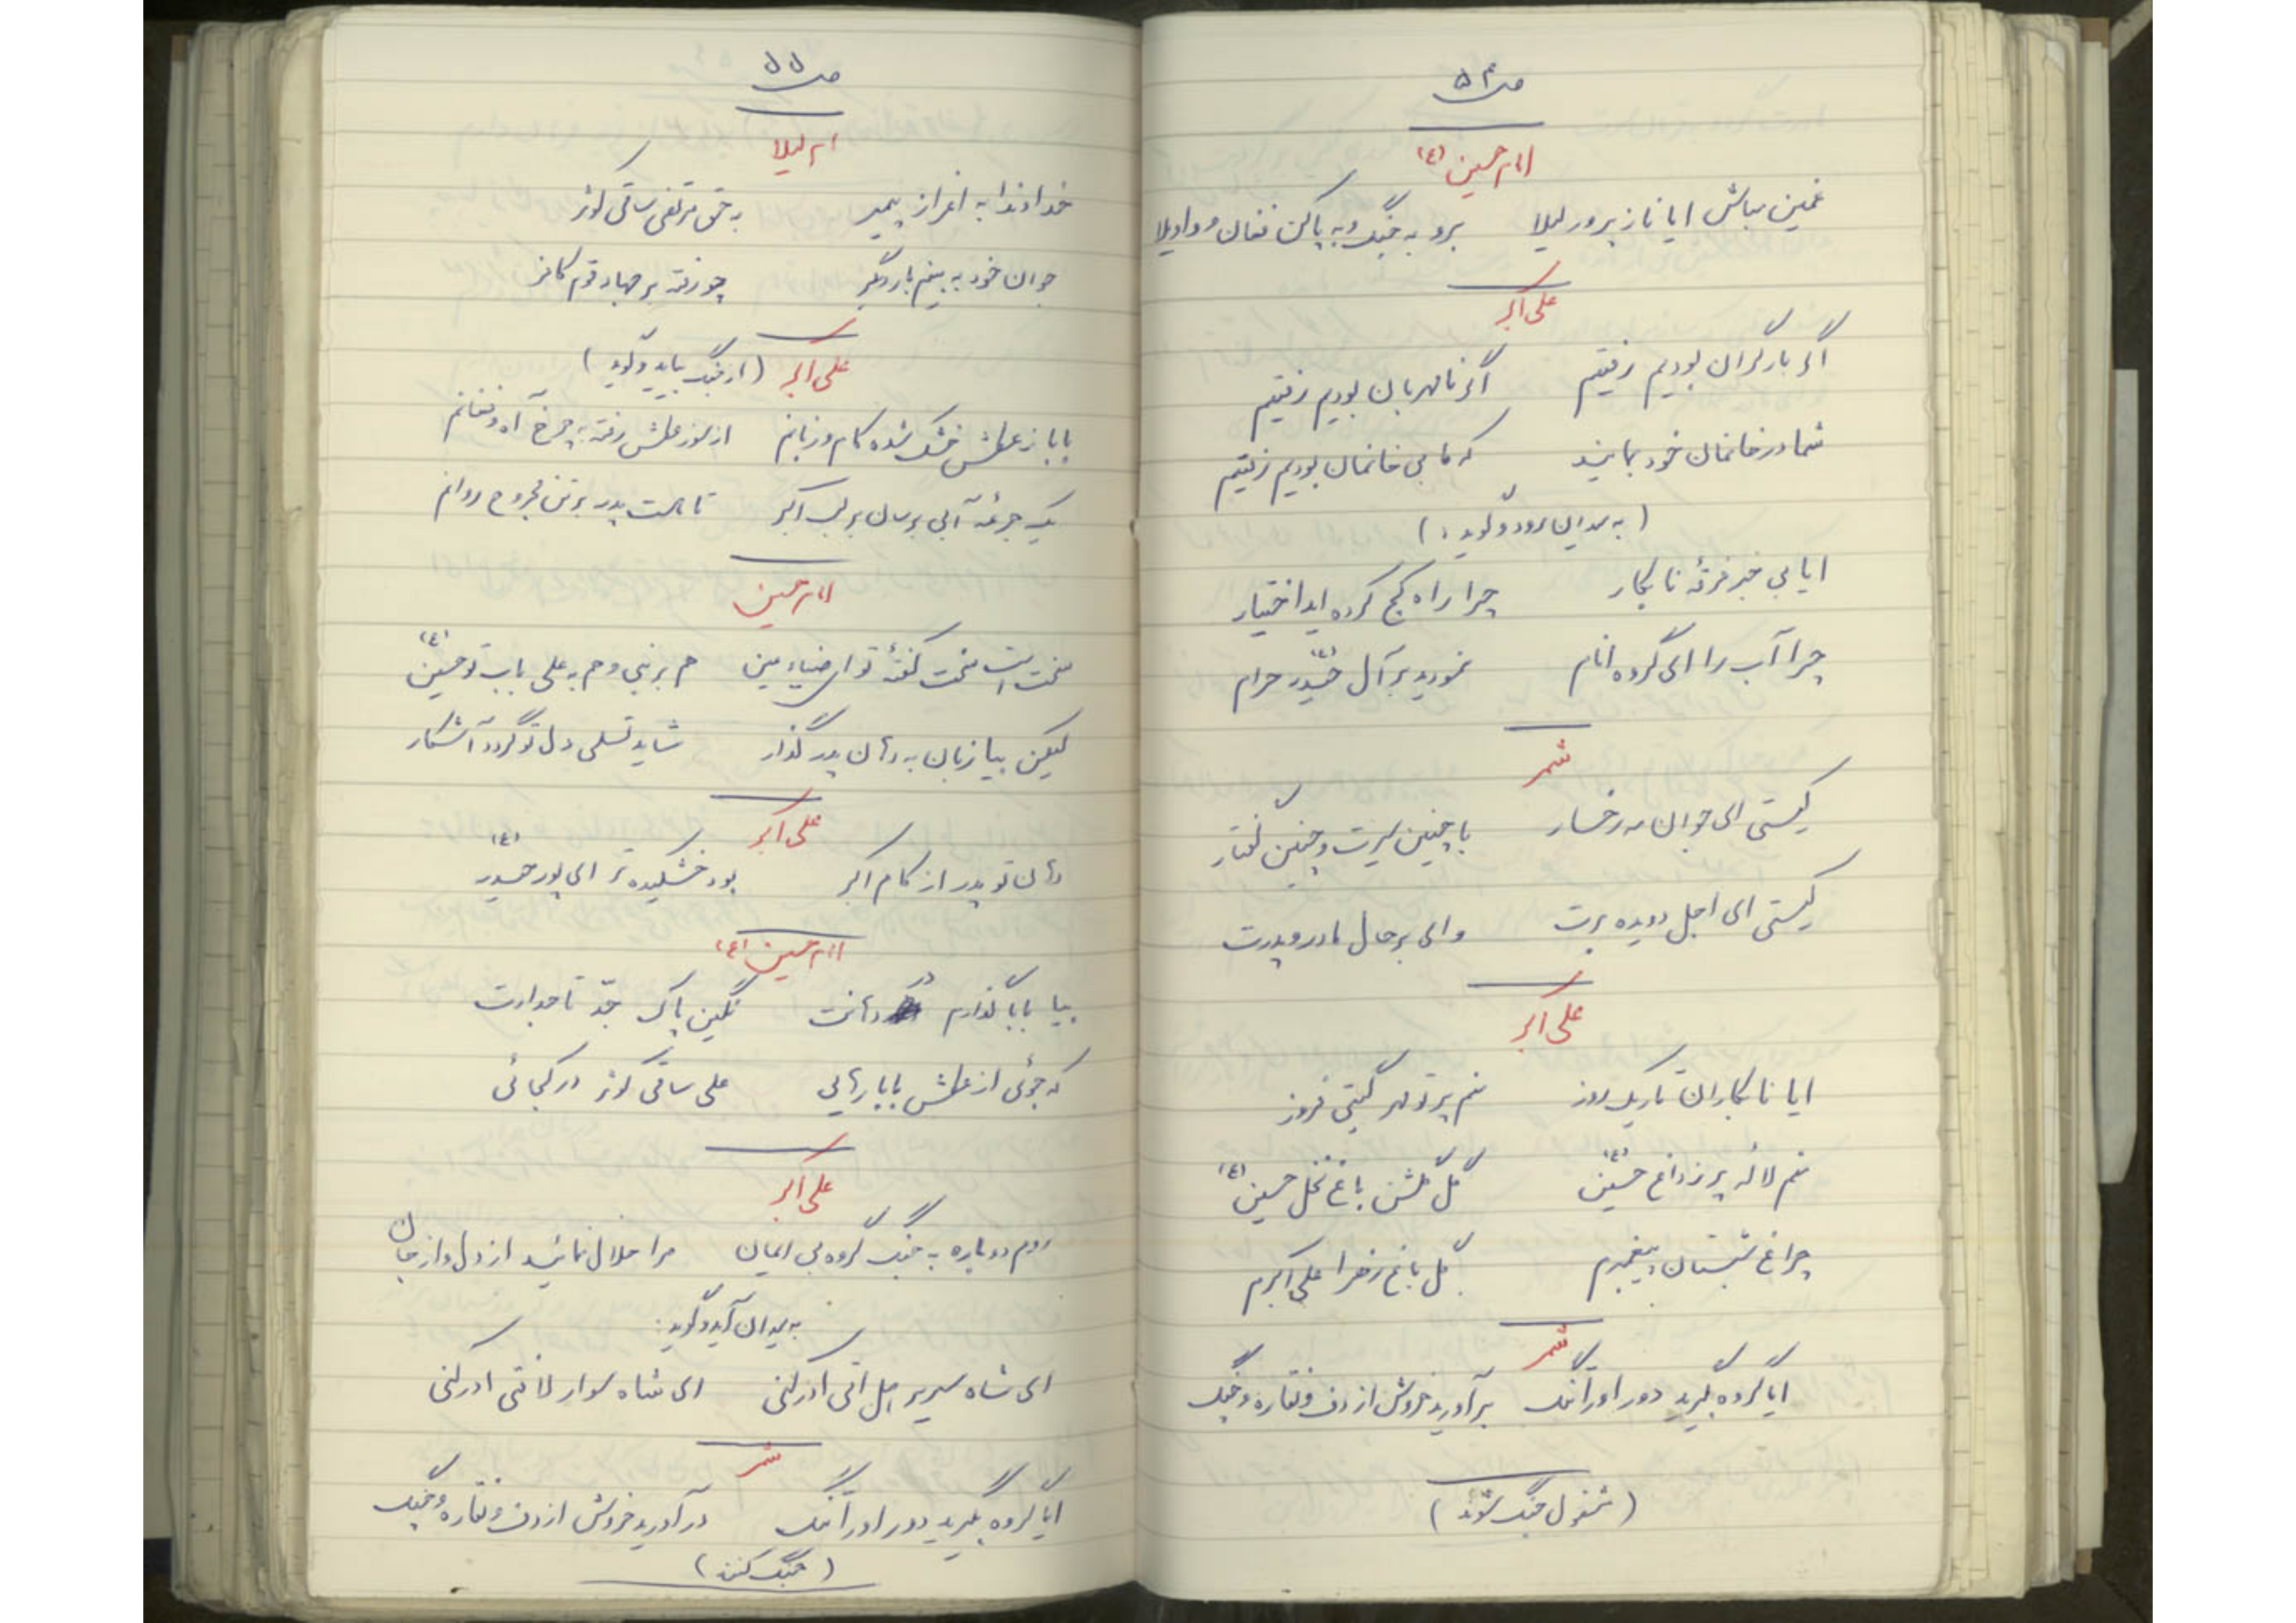 ص ۵۴
امام حسین (ع)
غمین مباش ایا ناز پرور لیلا    برو به جنگ و به پا کن فغان و واویلا
علی اکبر
اگر بار گران بودیم رفتیم    اگر نامهربان بودیم رفتیم
شما در خانمان خود بمانید    که ما بی خانمان بودیم رفتیم
(به میدان رود و گوید:)
ایا بی خبر فرقهٔ نابکار    چرا راه کج کرده اید اختیار
چرا آب را ای گروه انام    نمودید بر آل حیدر (ع) حرام
شمر
کیستی ای جوان مه رخسار    با چنین سیرت و چنین گفتار
کیستی ای اجل دویده برت    وای بر حال مادر و پدرت
علی اکبر
ایا نابکاران تاریک روز    منم پرتو مهر گیتی فروز
منم لاله پر ز داغ حسین (ع)    گل گلشن باغ نخل حسین (ع)
چراغ شبستان پیغمبرم    گل باغ زهرا علی اکبرم
شمر
ایا گروه بگیرید دور او را تنگ    برآورید خروش از دف و نقاره و چنگ
(مشغول جنگ شوند)
ص ۵۵
ام لیلا
خداوندا به اعزاز پیمبر    به حق مرتضی ساقی کوثر
جوان خود به بینم بار دیگر    چو رفته بر جهاد قوم کافر
علی اکبر (از جنگ بیاید و گوید)
بابا ز عطش خشک شده کام و زبانم    از سوز عطش رفته به چرخ آه و فغانم
یک جرعه آبی برسان بر لب اکبر    تا هست پدر بر تن مجروح روانم
امام حسین
سخت است سخت گفتهٔ تو ای ضیاء عین    هم بر نبی و هم به علی باب تو حسین (ع)
لیکن بیا زبان به دهان پدر گذار    شاید تسلی دل تو گردد آشکار
علی اکبر
دهان تو پدر از کام اکبر    بود خشکیده تر ای پور حیدر (ع)
امام حسین (ع)
بیا بابا گذارم در دهانت    نگین پاک جد تاجدارت
که جوئی از عطش بابا رهایی    علی ساقی کوثر در کجائی
علی اکبر
روم دوباره به جنگ گروه بی ایمان    مرا حلال نمائید از دل و از جان
به میدان آید و گوید:
ای شاه سریر هل اتی ادرکنی    ای شاه سوار لافتی ادرکنی
شمر
ایا گروه بگیرید دور او را تنگ    درآورید خروش از دف و نقاره و چنگ
(جنگ کنند)